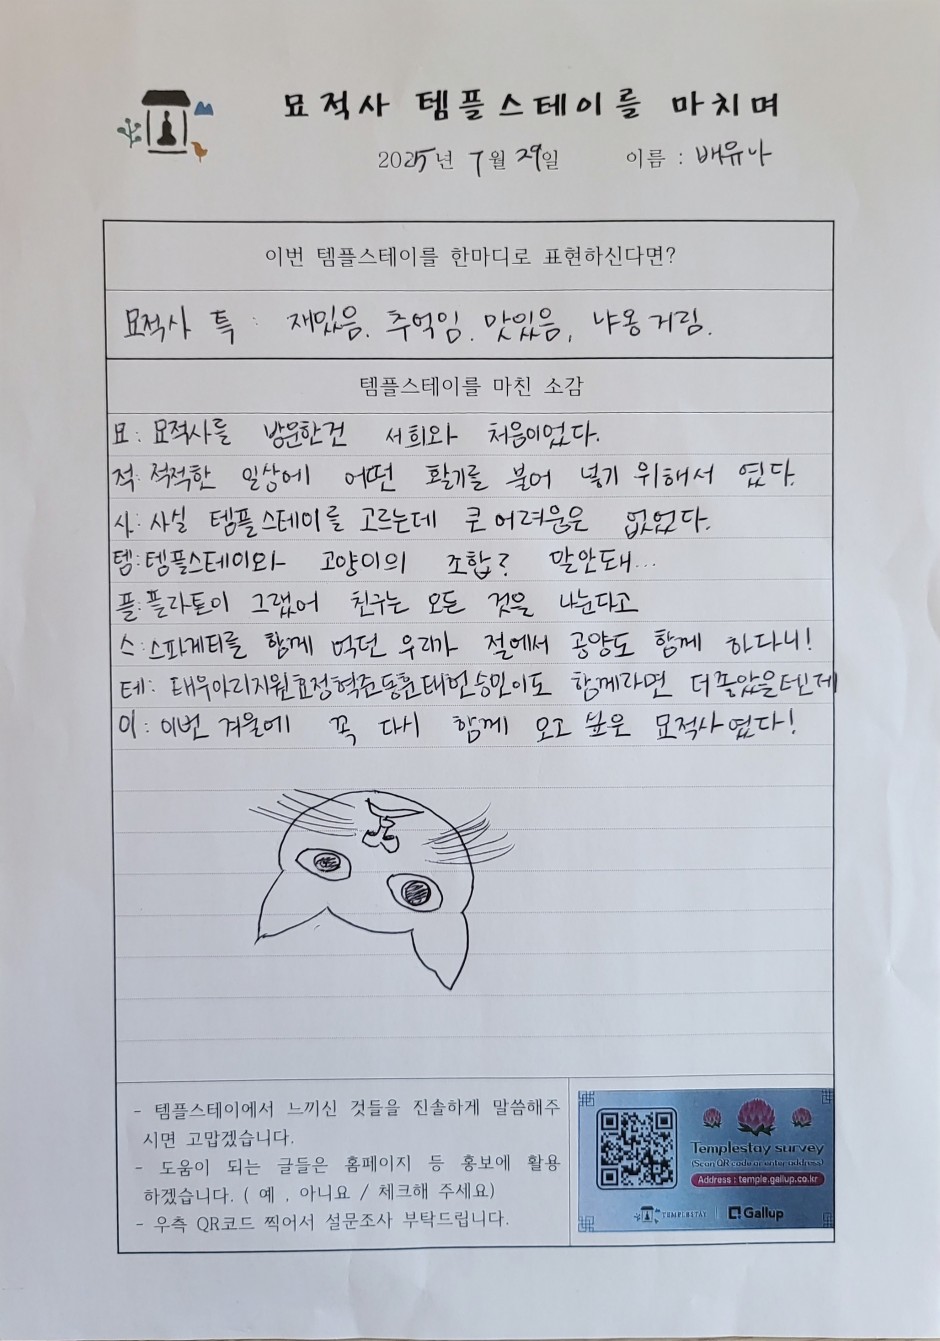 묘적사 템플스테이를 마치며
2025년 7월 29일 이름 : 배유나
이번 템플스테이를 한마디로 표현하신다면?
묘적사 특 : 재밌음. 추억임. 맛있음, 냐옹거림.
템플스테이를 마친 소감
묘: 묘적사를 방문한건 서희와 처음이었다.
적: 적적한 일상에 어떤 활기를 불어 넣기 위해서 였다.
사: 사실 템플스테이를 고르는데 큰 어려움은 없었다.
템: 템플스테이와 고양이의 조합? 말안돼...
플: 플라톤이 그랬어 친구는 모든 것을 나눈다고
스: 스파게티를 함께 먹던 우리가 절에서 공양도 함께 하다니!
테: 태우아리지원효정혁준동훈태헌승민이도 함께라면 더좋았을텐데
이: 이번 겨울에 꼭 다시 함께 오고 싶은 묘적사였다!
- 템플스테이에서 느끼신 것들을 진솔하게 말씀해주
시면 고맙겠습니다.
- 도움이 되는 글들은 홈페이지 등 홍보에 활용
하겠습니다. ( 예 , 아니요 / 체크해 주세요)
- 우측 QR코드 찍어서 설문조사 부탁드립니다.
Templestay survey
(Scan QR code or enter address)
Address : temple.gallup.co.kr
TEMPLESTAY
Gallup